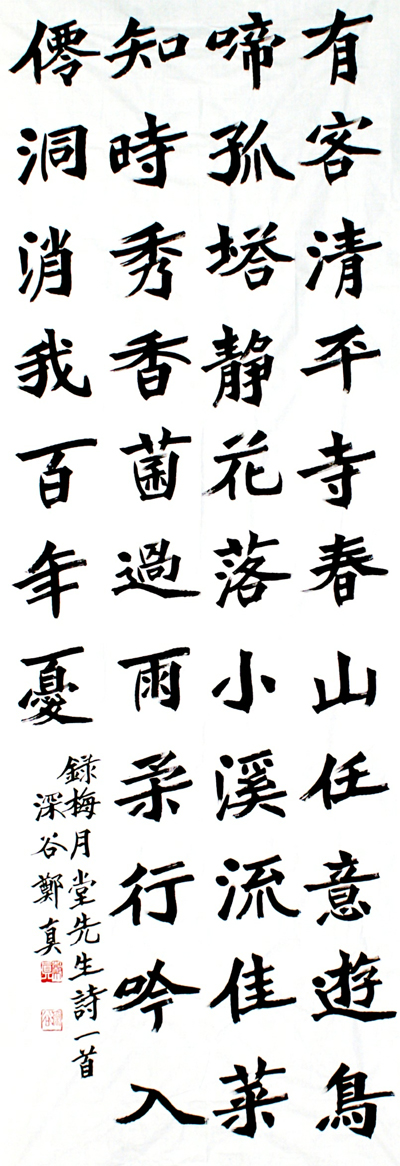 有客清平寺春山任意遊鳥
啼孤塔靜花落小溪流佳菜
知時秀香菌過雨柔行吟入
僊洞消我百年憂
錄梅月堂先生詩一首
深谷鄭真